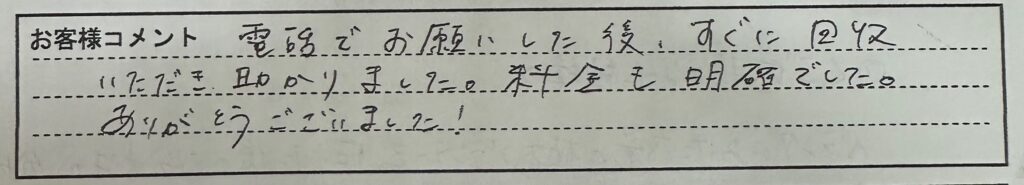 お客様コメント 電話でお願いした後、すぐに回収
いただき助かりました。料金も明確でした。
ありがとうございました!